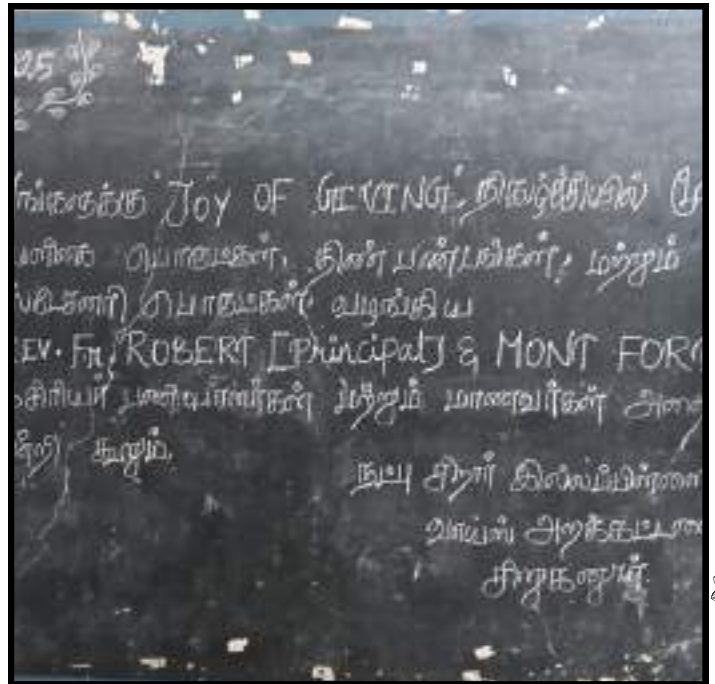 25
ங்களுக்கு "JOY OF GIVING" நிகழ்ச்சியில்
பொருட்கள், தின்பண்டங்கள், மற்றும்
ஸ்டேசனரி) பொருட்கள் வழங்கிய
EV. Fr. ROBERT [Principal] & MONT FOR
சிரியர் மற்றும் மாணவர்கள் அனை
ன்றி) கூறும்.
நட்பு சிறார் இல்லப்பிள்ளை
வாய்ஸ் அறக்கட்டளை
சிறுகனூர்.